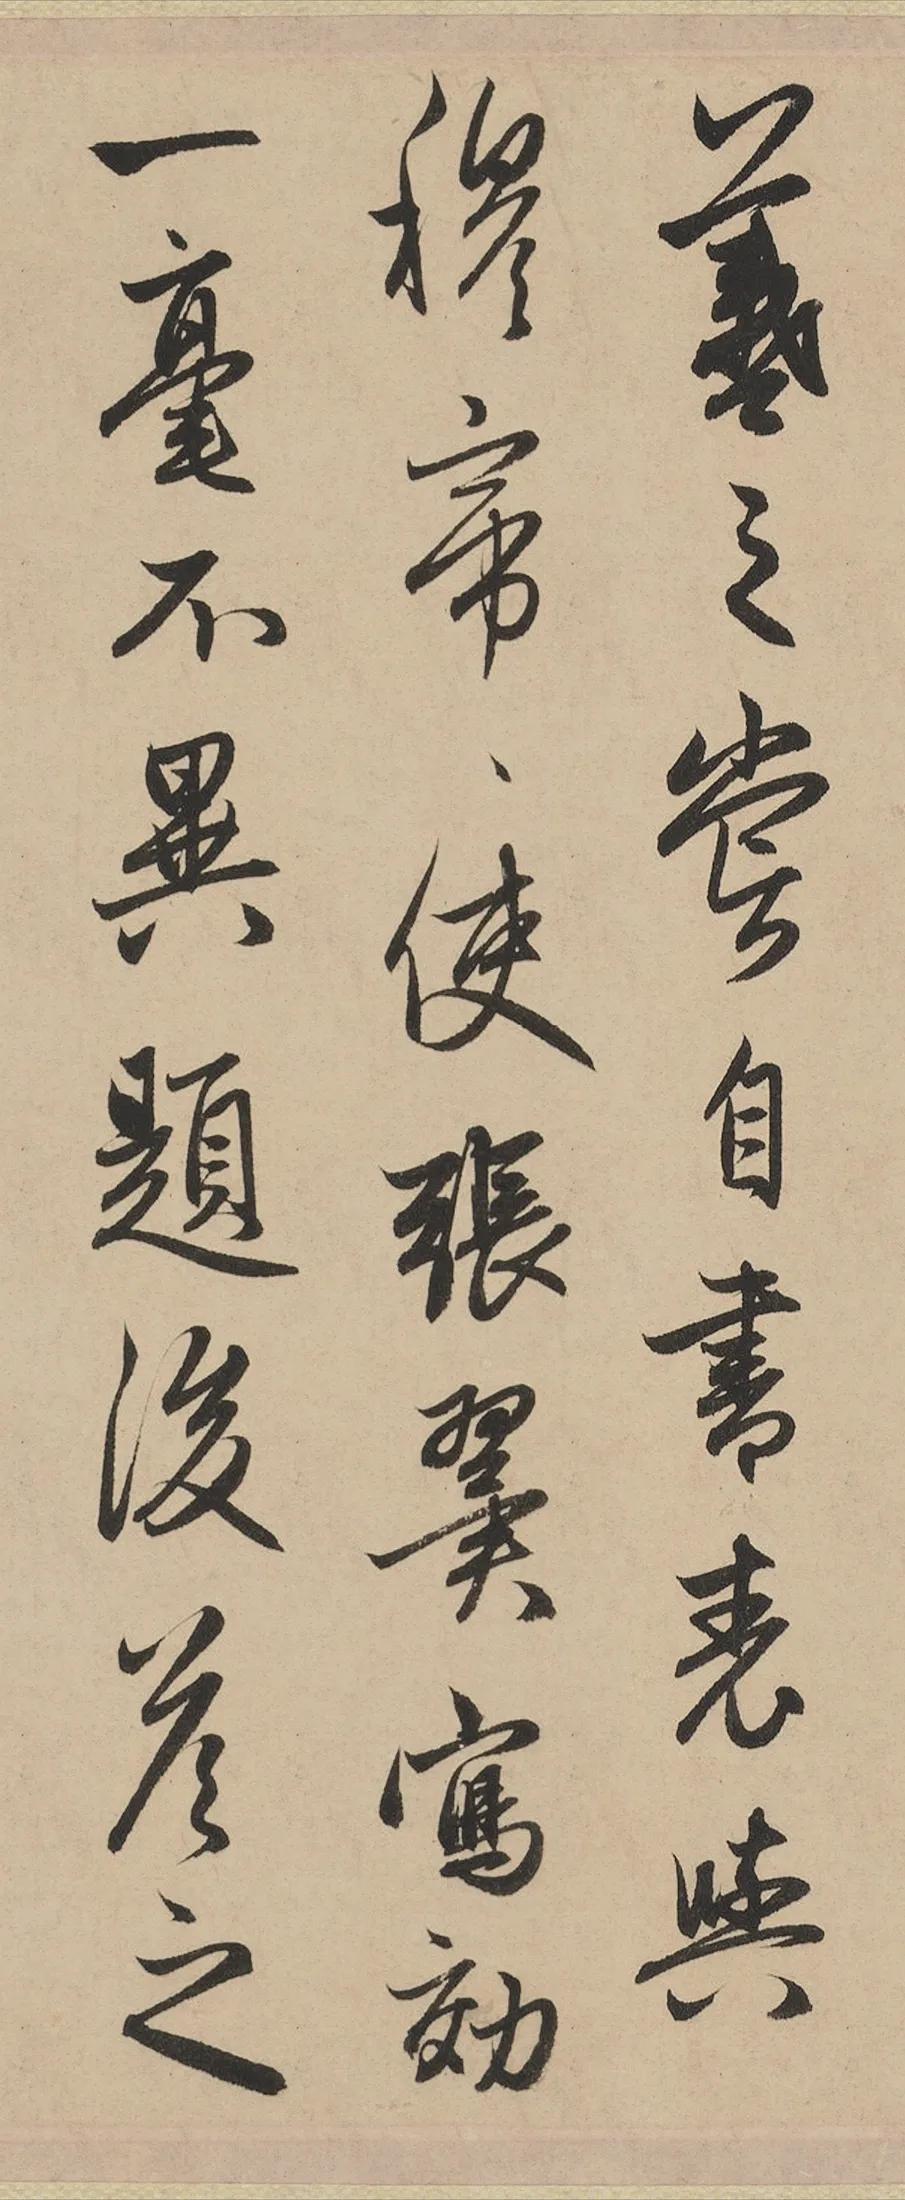 羲之嘗自書表與
穆帝、使張翼寫効
一毫不異題後答之